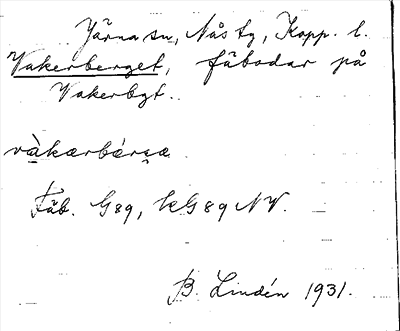 Järna sn, Nås tg, Kopp. l.
Vakerberget, fäbodar på
Vakerbgt.
vàkærbǽrꞔæ
Fäb. G 89, kG 89 NV.
B. Lindén 1931.